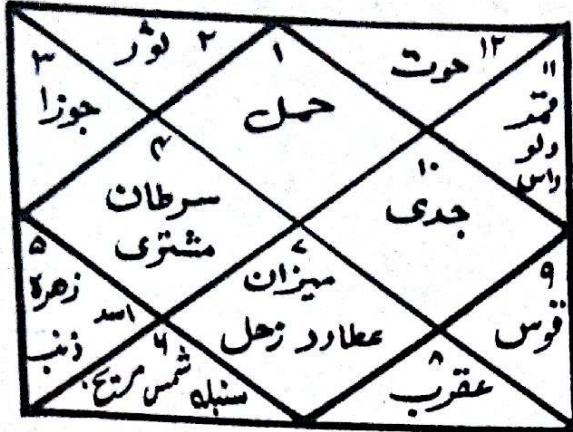 ۱
حمل
۲
ثور
۳
جوزا
۴
سرطان
مشتری
۵
زهرة
اسد
ذنب
۶
سنبله شمس مریخ
۷
میزان
عطارد زحل
۸
عقرب
۹
قوس
۱۰
جدی
۱۱
قمر
دلو
راس
۱۲
حوت